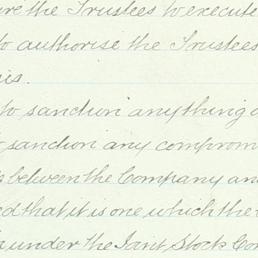 the Trustees to execute
to authorise the Trustees
to sanction anything
sanction any compromi
between the Company an
ed that it is one which the
under the Joint Stock Com